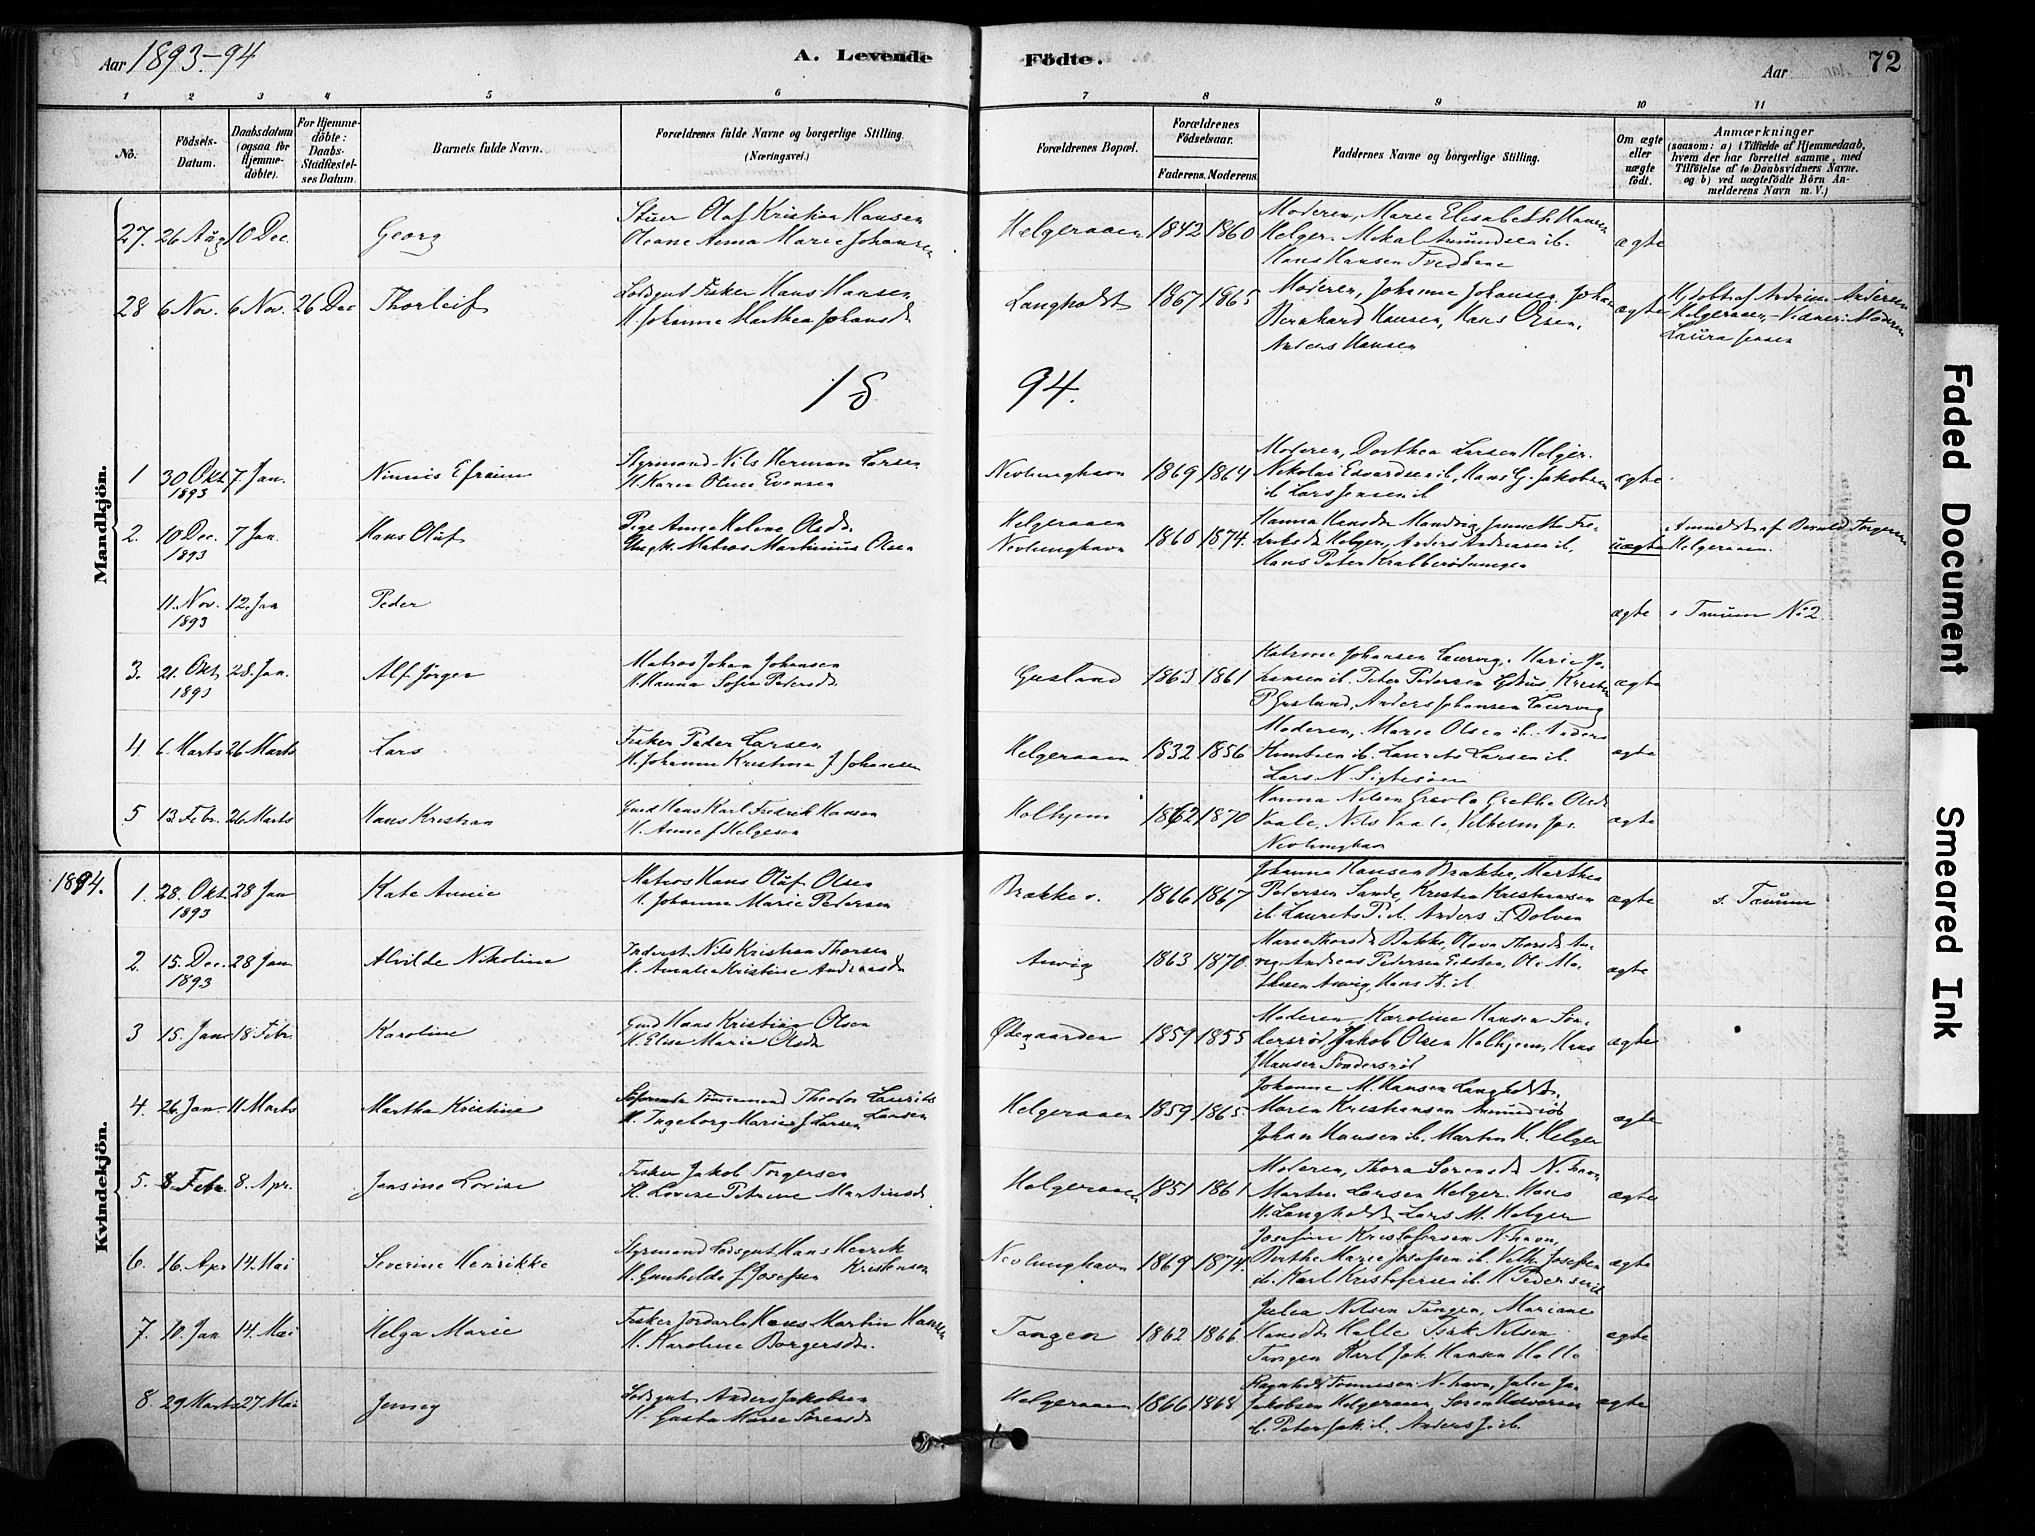 Aar 1893-94
A. Levende Födte.
Aar
72
1 2 3 4 5 6 7 8 9 10 11
No.
Födsels-Datum.
Daabsdatum (ogsaa for Hjemme-döbte).
For Hjemme-döbte: Daabs-Stadfæstel-ses Datum.
Barnets fulde Navn.
Forældrenes fulde Navne og borgerlige Stilling.
(Næringsvei.)
Forældrenes Bopæl.
Forældrenes Födselsaar.
Faderens. Moderens.
Faddernes Navne og borgerlige Stilling.
Om ægte eller uægte födt.
Anmærkninger
(saasom: a) i Tilfælde af Hjemmedaab,
hvem der har forrettet samme, med
Tilföielse af to Daabsvidners Navne.
og b) ved uægtefödte Börn An-
melderens Navn m. V.)
Mandkjön.
27. 26 Aug 10 Dec. Georg
Olaf Kristian Hansen
Oleane Anna Marie Johansen
Helgeraaen 1842 1860
Moderen, Marie Elisabeth Hansen
Helger. Mikal Amundsen ib.
Hans Hansen Tvedene
ægte
28 6 Nov. 6 Nov. 26 Dec Thorleif
Lodsgut Fisker Hans Hansen
H. Johanne Marthea Johansd
Langholdt 1867 1865
Moderen, Johanne Johansen, Johan
Bernhard Hansen, Hans Olsen,
Anders Hansen
ægte
Hj.döbt af Andersen
Helgeraaen. Vidner: Moderen
Laura Jensen
1894.
1 30 Okt 1893 7 Jan. Efraim
Styrmand Nils Herman Larsen
H. Karen Oline Evensen
Nevlunghavn 1869 1864
Moderen, Dorthea Larsen Helger.
Nikolai ib, Hans G. Jakobsen
ib Lars Jensen ib
ægte
2. 10 Dec. 1893 7 Jan. Hans Oluf
Pige Anne Helene Olsd.
Ungk. Matros Martinius Olsen
Helgeraaen
Nevlunghavn 1860 1874.
Hanna Hansdr
Helger, Anders Andersen ib.
Hans Peter
uægte
Anmeldt af
Helgeraaen.
11. Nov. 1893 12. Jan Peder
ægte s. Tanum No 2
3. 21. Okt 1893 28. Jan. Alf Jörgen
Matros Johan Johansen
H. Hanna Sofie Pedersd.
Gusland 1863 1861
Johansen Laurvig, Marie Jo-
hansen ib. Peter Pedersen
P. Gusland, Anders Johansen Laurvig
ægte
4 6. Marts 26 Marts Lars
Fisker Peder Larsen
H. Johanne Kristine J Johansen
Helgeraaen 1832 1856
Moderen, Marie Olsen ib. Anders
Knutsen ib. Laurits Larsen ib.
Lars N.
ægte
5 13 Febr. 26 Marts Hans Kristian
Gmd Hans Karl Fredrik Hansen
H. Anne f Helgesen
Holhjem 1862 1870
Hanna Nilsen Grethe Olsd.
Vaale, Nils Vaale, Vilhelm
Nevlunghavn
ægte
1894.
Kvindekjön.
1. 28. Okt. 1893 28 Jan Kate Annie
Matros Hans Oluf Olsen
H. Johanne Marie Pedersen
Brække s. 1866 1867
Johanne Hansen Brække, Marthea
Pedersen Sande, Kristen Kristiansen
ib. Laurits P. ib. Anders Dolven
ægte s. Tanum
2. 15. Dec. 1893 28 Jan Alvilde Nikoline
Inderst Nils Kristian Thorsen
H. Amalie Kristine Andreasd.
Anvig 1863 1870
Marie Thorsd Bakke, Olava Thorsd An-
vig, Andreas Pedersen, Ole Ma-
thisen Anvig, Hans Th. ib.
ægte
3 15. Jan 18 Febr. Karoline
Gmd Hans Kristian Olsen
H. Elise Marie Olsdr
Ødegaarden 1859 1855
Moderen, Karoline Hansen Søn-
dersröd, Jakob Olsen Holhjem, Hans
J Hansen Söndersröd
ægte
4. 26. Jan. 11 Marts Martha Kristine
Tömmermand Theodor Laurits Larsen
H. Ingeborg Marie J Larsen
Helgeraaen 1859 1865
Johanne M. Hansen Langholdt.
Maren Kristiansen
Johan Hansen ib. Martin H. Helger
ægte
5. 8. Febr. 8. Apr. Jonsine Lovise
Fisker Jakob Torgersen
H. Lovise Petrine Martinsd
Helgeraaen 1851 1861
Moderen, Thora Sörensd N.havn,
Martin Larsen Helger. Hans
H. Langholdt Lars M. Helger
ægte
6. 16. Apr 14. Mai Severine Henrikke
Styrmand Lodsgut Hans Henrik Kristensen
H. Gunhilde f Josefsen
Nevlunghavn 1869 1874.
Josefine Kristofersen N.havn,
Berthe Marie Josefsen ib. Vilh. Josefsen
ib. Karl Kristofersen ib. H Pedersen ib
ægte
7. 10. Jan 14. Mai Helga Marie
Fisker Hans Martin Hansen
H. Karoline Borgersdr.
Tangen 1862 1866
Julea Nilsen Tangen, Mariane
Hansdtr Halle Isak Nilsen
Tangen Karl Joh. Hansen Halle
ægte
8 29 Marts 27 Mai Jenny
Lodsgut Anders Jakobsen
H. Gusta Marie Sörensd
Helgeraaen 1866 1868
Ragnhild Tönnesen N.havn, Julie Ja-
Jakobsen Helgeraaen, Sören Halvorsen
ib. Peter Jak. ib. Anders J. ib.
ægte
Faded Document
Smeared Ink